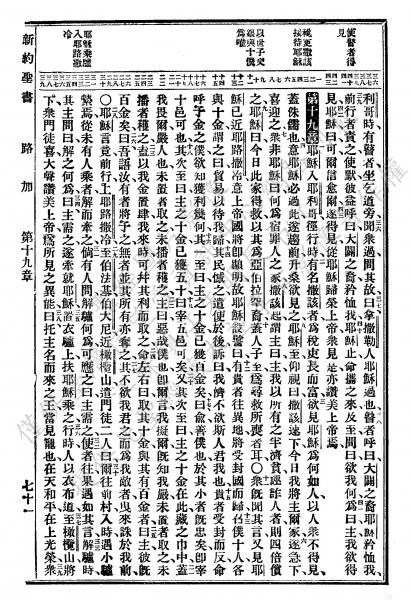 使瞽者得見
稅吏撒該接待耶穌
以世子受國與十僕爲喻
耶穌乘驢入耶路撒冷
利哥時有瞽者坐乞道旁聞衆過問其故曰拿撒勒人耶穌過也瞽者呼曰大闢之裔耶穌矜恤我
前行者責之使默彼益呼曰大闢之裔矜恤我耶穌止命攜之來及至問曰欲我何爲曰主我欲得
見耶穌曰可爾信愈爾遂得見從耶穌歸榮上帝衆見之亦讚美上帝焉
第十九章 耶穌入耶利哥徑行時有名撒該者爲稅吏長而富欲見耶穌爲何如人以人衆不得見
蓋侏儒也意耶穌必過此遂趨前升桑欲見之耶穌至仰視曰撒該速下今日我將主爾家遂急下
喜迎之衆非耶穌曰何爲宿罪人之家撒該起謂主曰主我以所有之半濟貧誣詐人者則四倍償
之耶穌曰今日此家得救以其爲亞伯拉罕裔蓋人子至爲尋救所喪者耳○衆既聞其言又見耶
穌已近耶路撒冷意上帝國將卽顯明故耶穌設譬曰有貴者往異地將受封國而歸召僕十人各
與十金謂之曰貿易以待我歸其民憾之遣使於後訴曰我儕不欲斯人君我也貴者受封而反命
呼予金之僕欲知獲利幾何其一至曰主之十金已獲百金矣曰俞善僕也於其小者旣忠矣卽宰
十邑可也其次至曰主之十金已獲五十曰宰五邑可矣又其次至曰主之十金在此藏之巾中蓋
我畏爾嚴人也未置者取之未播者穫之主曰惡哉僕也卽爾言我擬爾旣知我嚴未置者取之未
播者穫之曷以我金置肆我來時可幷其利而取之命左右曰取其十金與其有百金者曰主彼旣
百金矣曰吾語汝有者將予之無者並其所有亦奪之其不欲我君之而爲我敵者曳來誅於我前
○耶穌言竟前行上耶路撒冷至伯法基伯大尼近橄欖山遣門徒二人曰爾往前村入時遇小驢
縶焉從未有人乘者解而牽之倘有人問解驢何爲可應之曰主需之使者往果遇如其言解驢時
其主問曰解之何爲曰主需之遂牽就耶穌置衣驢上扶耶穌乘之行時人以衣布道至橄欖山將
下衆門徒喜大聲讚美上帝爲所見之異能曰托主名而來之王當見寵也在天和平在上光榮衆
新約聖書 路加 第十九章 七十一